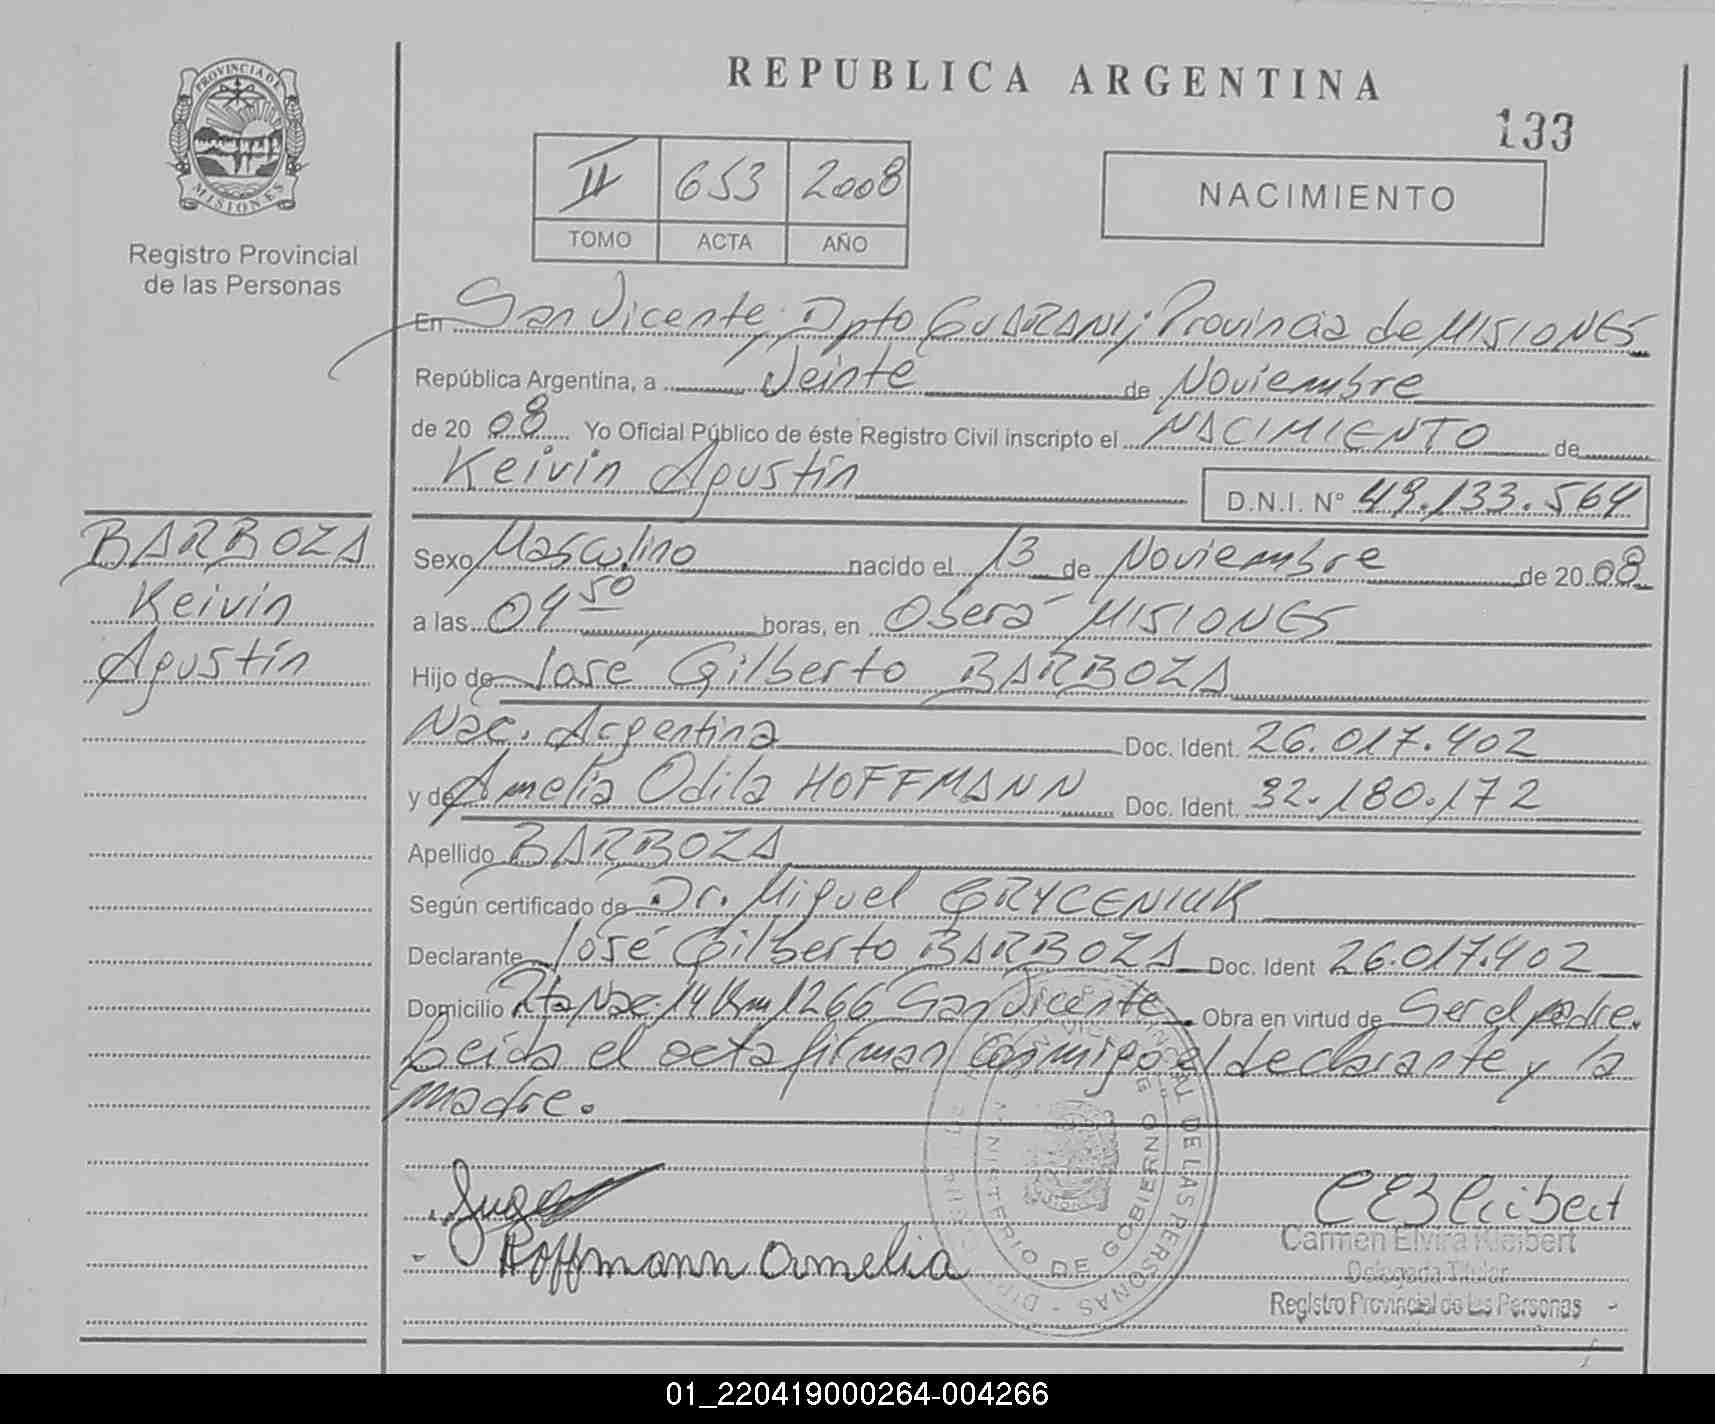 PROVINCIA DE
MISIONES
Registro Provincial
de las Personas
BARBOZA
Keivin
Agustín
REPUBLICA ARGENTINA
133
II 653 2008
TOMO ACTA AÑO
NACIMIENTO
En San Vicente; Dpto GUARANI; Provincia de MISIONES
República Argentina, a Veinte de Noviembre
de 20 08 Yo Oficial Público de éste Registro Civil inscripto el NACIMIENTO de
Keivin Agustín D.N.I. N° 49.133.564
Sexo Masculino nacido el 13 de Noviembre de 20 08
a las 04 50 horas, en Oberá MISIONES
Hijo de José Gilberto BARBOZA
Nac. Argentina Doc. Ident. 26.017.402
y de Amelia Odila HOFFMANN Doc. Ident. 32.180.172
Apellido BARBOZA
Según certificado de Dr. Miguel GRYCENIUK
Declarante José Gilberto BARBOZA Doc. Ident 26.017.402
Domicilio Rta Nac. 14 Km 1266 San Vicente. Obra en virtud de Ser el padre.
Leida el acta firman conmigo el declarante y la
madre.
MINISTERIO DE GOBIERNO
DE LAS PERSONAS
Hoffmann Amelia
CEKleibert
Carmen Elvira Kleibert
Delegada Titular
Registro Provincial de las Personas
01_220419000264-004266